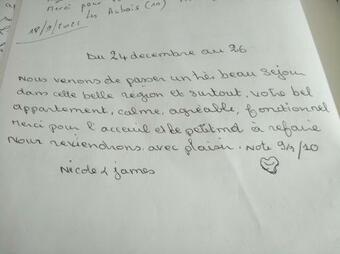 Merci pour
18/9/2021 Les Aubois (10)
Du 24 decembre au 26
Nous venons de passer un très beau sejour
dans cette belle région et surtout, votre bel
appartement, calme, agréable, fonctionnel
Merci pour l'acceuil et le petit md à refaire
Nous reviendrons avec plaisir. Note 9/10
Nicole & james